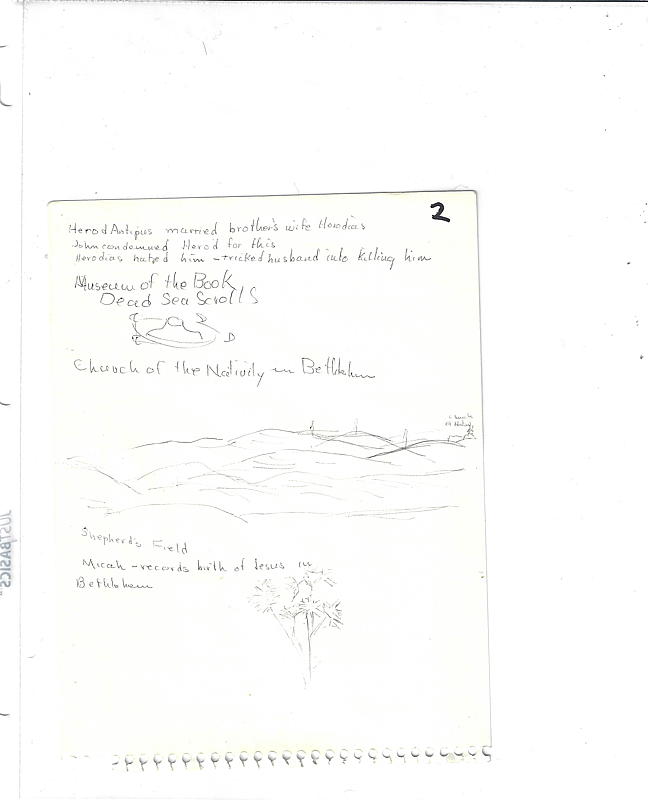 2
Herod Antipus married brother's wife Herodias
John condemned Herod for this
Herodias hated him - tricked husband into killing him
Museum of the Book
Dead Sea Scrolls
D
Church of the Nativity in Bethlehem
Church
of Nativity
Shepherd's Field
Micah - records birth of Jesus in
Bethlehem
JUST BASICS